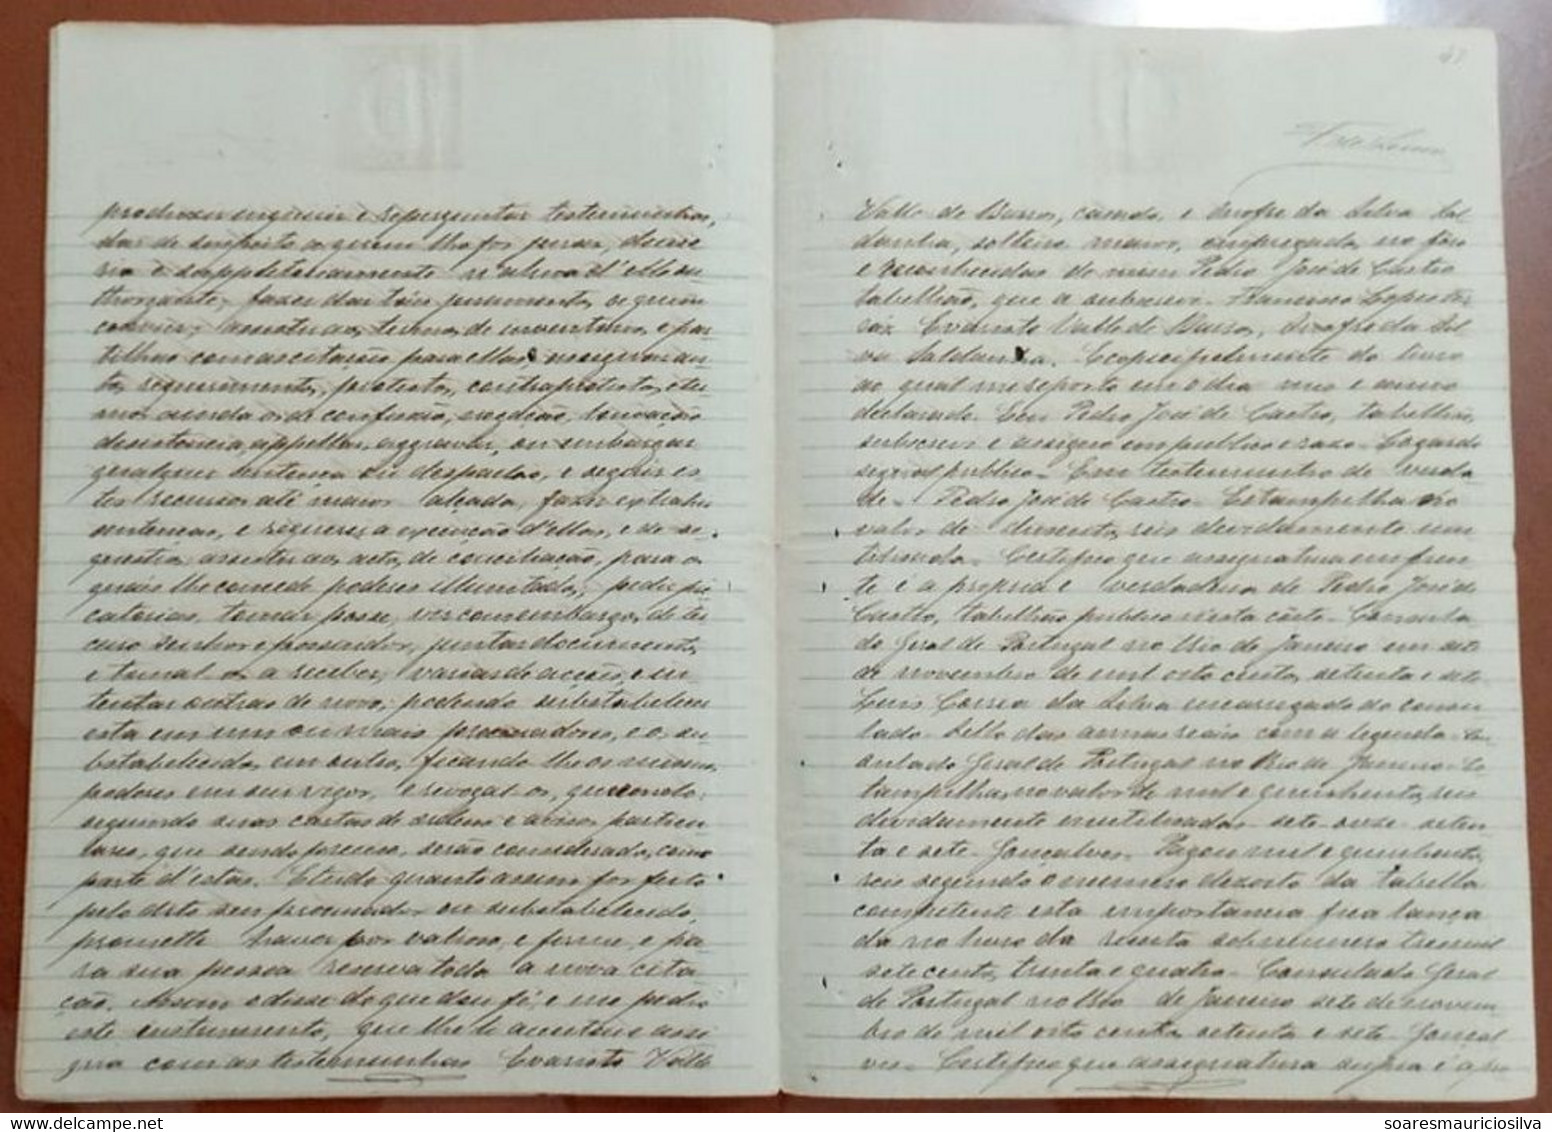 produzir inquirir e reperguntar testemunhas,
dar de suspeito a quem lh'o for jurar, deciso
rio e suppletoriamente n'alma d'elle ou
thorgante, fazer dar taes juramentos a quem
convier; assistir aos termos de inventarios e par
tilhas com as citações para ellas assignar au
tos, requerimentos, protestos, contraprotestos, e ter
mos ainda os de confissão, negação, louvação
desistencia, appellar, aggravar, ou embargar
qualquer sentença ou despacho, e seguir es
tes recursos até maior alçada, fazer extrahir
sentenças, e requerer a execução d'ellas, e de se
questros assistir aos actos de conciliação, para os
quais lhe concede poderes illimitados, pedir pre
catorias, tomar posse, vir com embargos de ter
ceiro senhor e possuidor, juntar documentos
e tornal os a receber, variar de acções, e in
tentar outras de novo, podendo substabelecer
esta em um ou mais procuradores, e os su
bstabelecidos em outros, ficando lhe os mesmos
poderes em seu vigor, e revogal os, querendo;
seguindo suas cartas de ordens e avisos particu
lares, que sendo preciso, serão considerados, como
parte d'estas. E tudo quanto assim for feito
pelo dito seu procurador ou substabelecido,
promette haver por valioso, e firme, e pa
ra sua pessoa reserva toda a nova cita
ção. Assim o disse do que dou fé; e me pedio
este instrumento, que lhe li acceitou e assi
gna com as testemunhas Evaristo Valle
47
Valle de Barros, casado, e Onofre da Silva Sal
danha, solteiro maior, empregados no fôro
e reconhecidos de mim Pedro José de Castro
tabellião, que a subscrevi. Francisco Lopes
Evaristo Valle de Barros, Onofre da Sil
va Saldanha. E copiei fielmente do livro
ao qual me reporto em o dia mez e anno
declarado. Eu Pedro José de Castro, tabellião,
subscrevi e assigno em publico e razo. Logar do
signal publico. Em testemunho de verda
de. Pedro José de Castro. Estampilha no
valor de duzentos reis devidamente inu
tilisada. Certifico que assignatura em fren
te é a propria e verdadeira de Pedro José de
Castro, tabellião publico n'esta côrte. Consula
do Geral de Portugal no Rio de Janeiro em sete
de novembro de mil oito centos setenta e sete
Luis Correa da Silva encarregado do consu
lado. Sello das armas reaes com a legenda. Con
sulado Geral de Portugal no Rio de Janeiro. Es
tampilhas, no valor de mil e quinhentos reis
devidamente inutilisadas. sete. onze. seten
ta e sete. Gonçalves. Pagou mil e quinhentos
reis segundo o numero dezoito da tabella
competente esta importancia fica lança
da no livro da receita sob numero tres mil
sete centos, trinta e quatro. Consulado Geral
de Portugal no Rio de Janeiro sete de novem
bro de mil oito centos setenta e sete. Gonçal
ves. Certifico que assignatura supra é a pro
soaresmauriciosilva